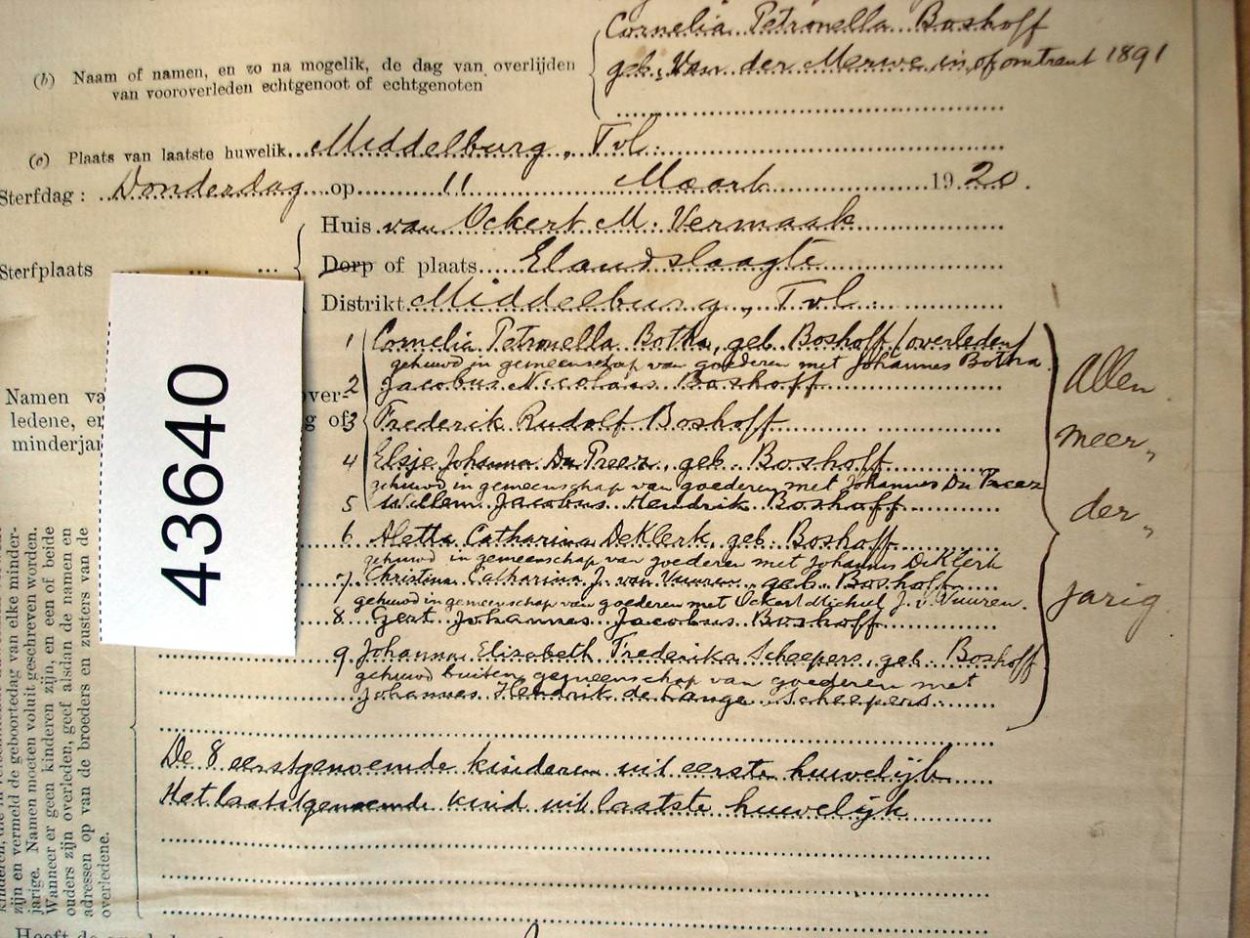 Cornelia Petronella Boshoff
(b) Naam of namen, en zo na mogelik, de dag van overlijden
van vooroverleden echtgenoot of echtgenoten
geb. Van der Merwe in of omtrent 1891
(c) Plaats van laatste huwelik Middelburg, Tvl.
Sterfdag: Donderdag op 11 Maart 1920.
Sterfplaats
Huis van Ockert M. Vermaak
Dorp of plaats Elandslaagte
Distrikt Middelburg, Tvl.
1 Cornelia Petronella Botha, geb. Boshoff (overleden)
gehuwd in gemeenschap van goederen met Johannes Botha
2 Jacobus Nicolaas Boshoff
3 Frederik Rudolf Boshoff
4 Elsje Johanna Du Preez, geb. Boshoff
gehuwd in gemeenschap van goederen met Johannes Du Preez
5 Willem Jacobus Hendrik Boshoff
6 Aletta Catharina DeKlerk, geb. Boshoff
gehuwd in gemeenschap van goederen met Johannes DeKlerk
7 Christina Catharina J. van Vuuren, geb. Boshoff
gehuwd in gemeenschap van goederen met Ockert Michiel J. v. Vuuren.
8 Gert Johannes Jacobus Boshoff
9 Johanna Elizabeth Frederika Scheepers, geb. Boshoff
gehuwd buiten gemeenschap van goederen met
Johannes Hendrik de Lange Scheepers.
Allen
meer
der
jarig
Namen va
over-
ledene, en
g of
minderjar
43640
De 8 eerstgenoemde kinderen uit eerste huwelijk
Het laatstgenoemde kind uit laatste huwelijk
zijn en vermeld de geboortedag van elke minder-
jarige. Namen moeten voluit geschreven worden.
Wanneer er geen kinderen zijn, en een of beide
ouders zijn overleden, geef alsdan de namen en
adressen op van de broeders en zusters van de
overledene.
Heeft de